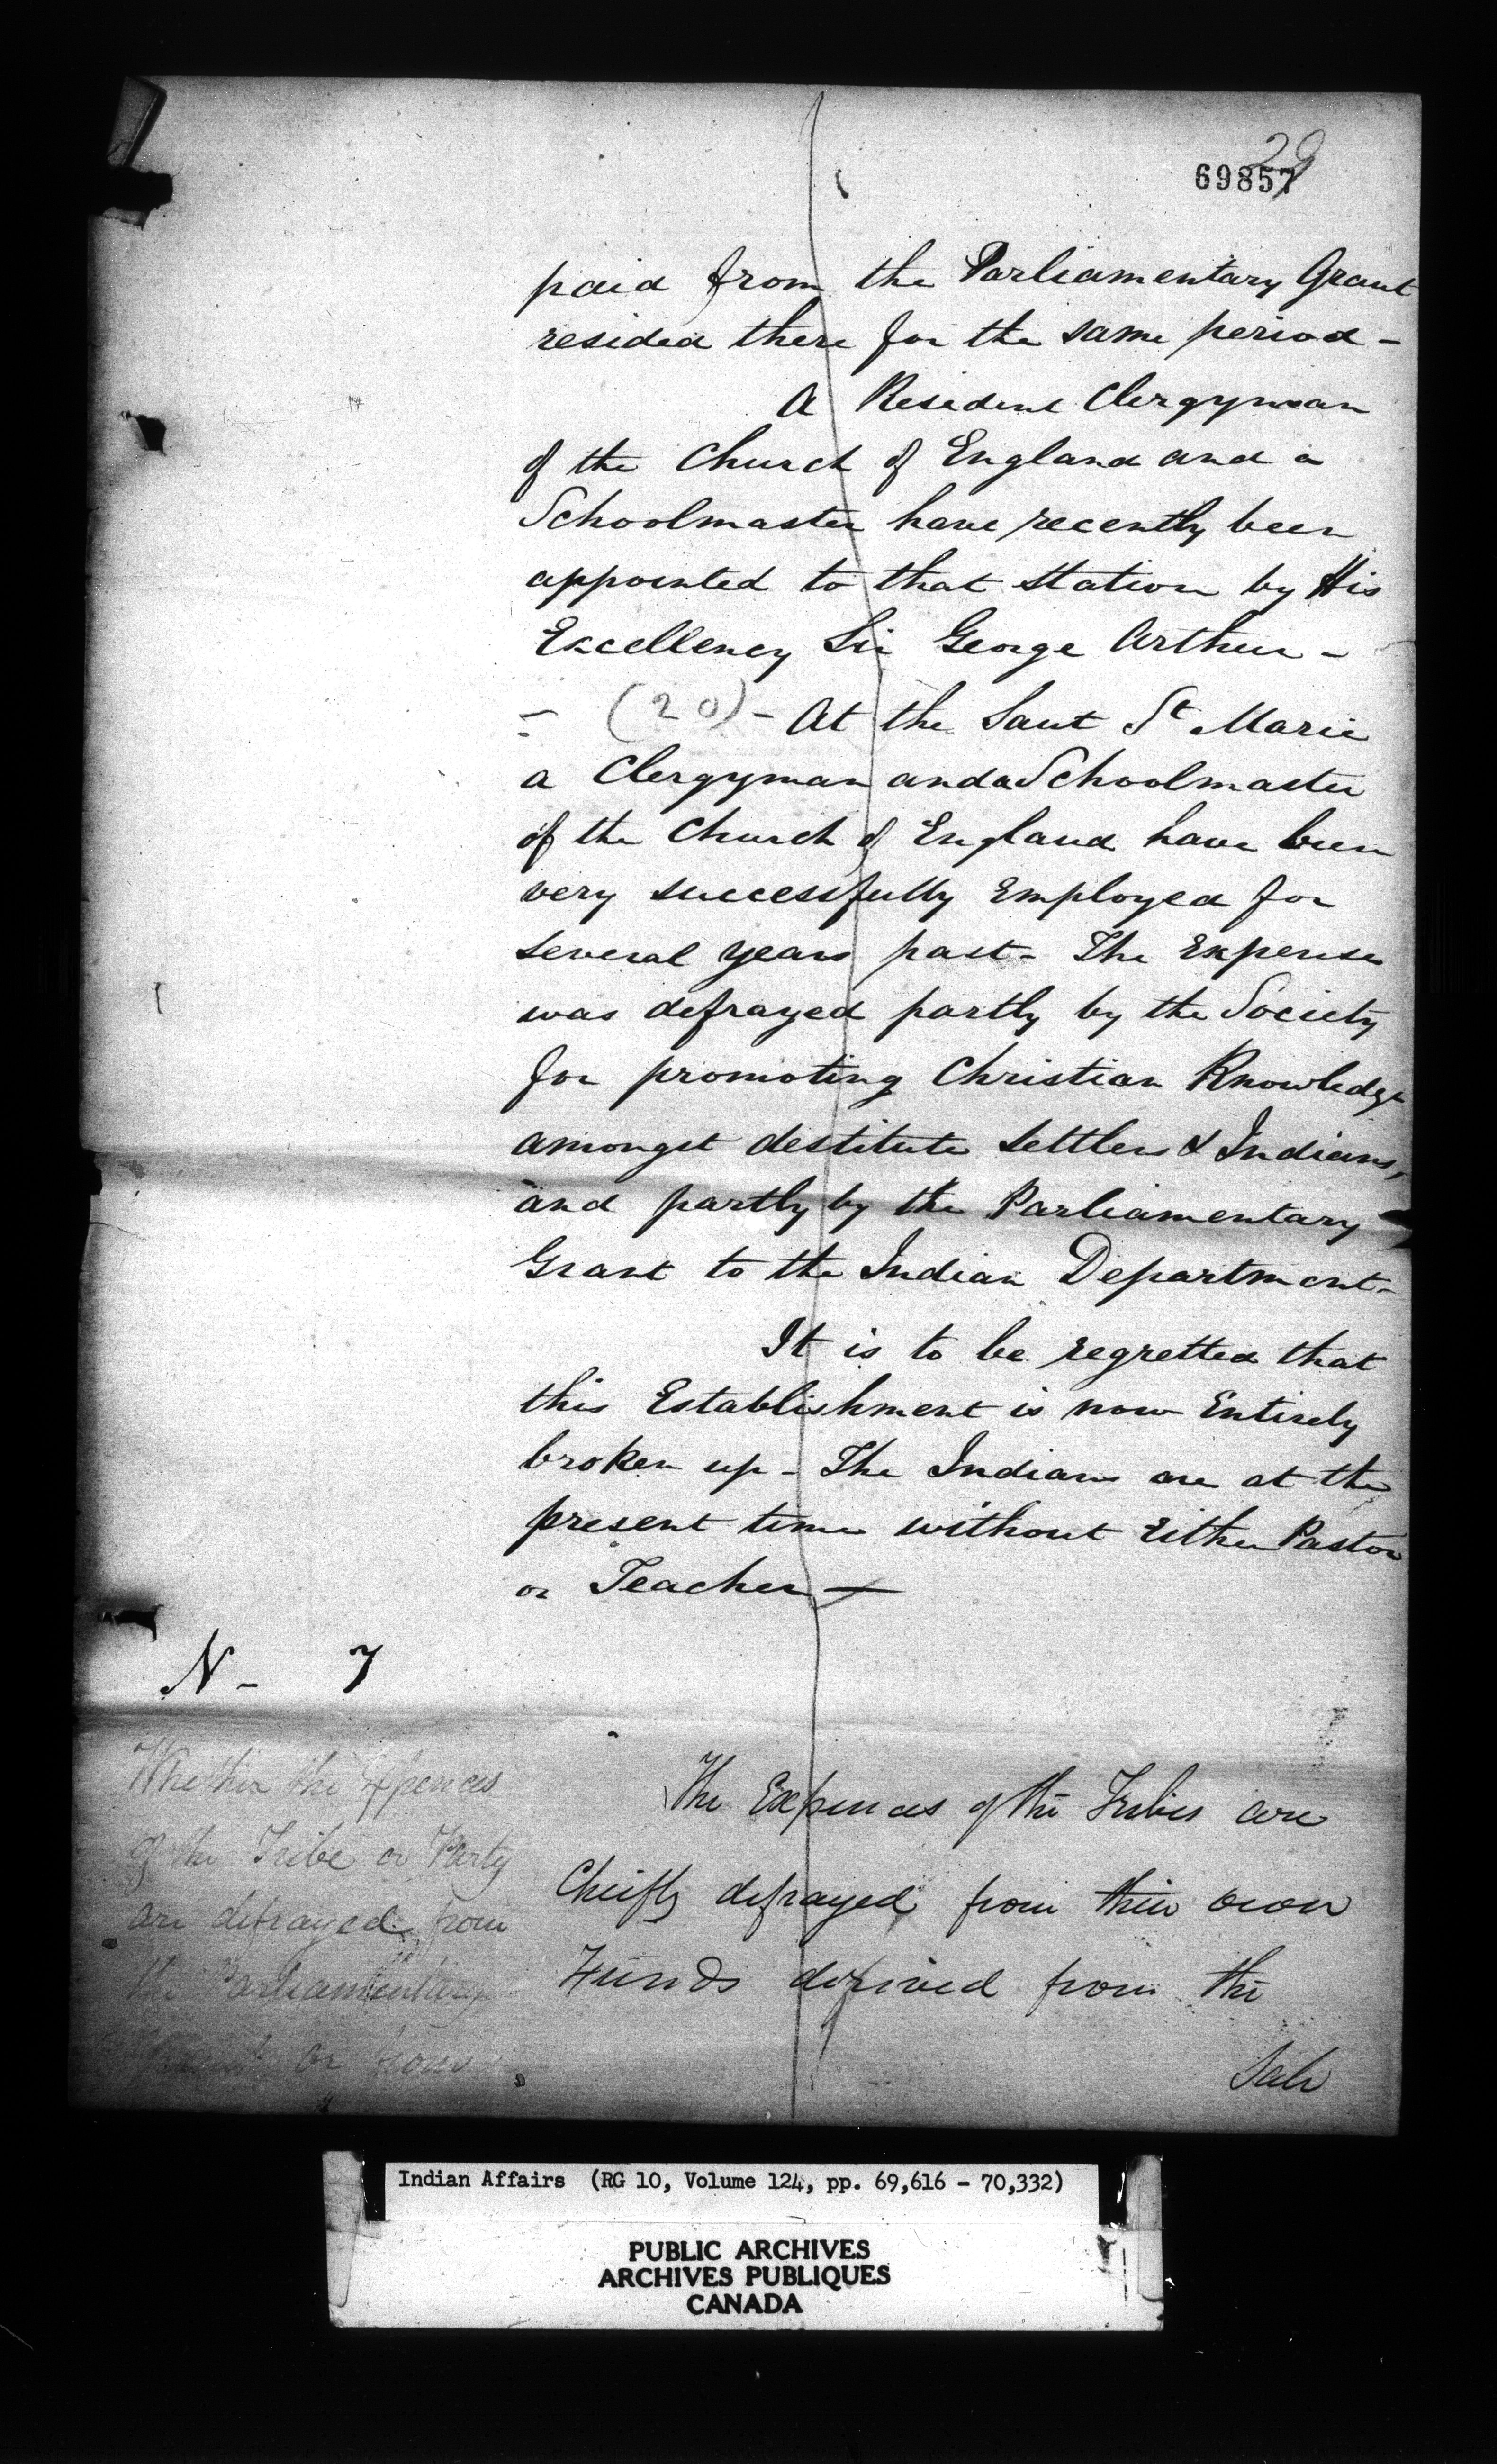 29
69857
paid from the Parliamentary Grant
resided there for the same period -
A Resident Clergyman
of the Church of England and a
Schoolmaster have recently been
appointed to that Station by His
Excellency Sir George Arthur -
- (20) - At the Saut St Marie
a Clergyman and a Schoolmaster
of the Church of England have been
very successfully Employed for
several years past - The Expense
was defrayed partly by the Society
for promoting Christian Knowledge
amongst destitute Settlers & Indians,
and partly by the Parliamentary
Grant to the Indian Department -
It is to be regretted that
this Establishment is now Entirely
broken up - The Indians are at the
present time without Either Pastor
or Teacher
N - 7
Whether the Expences
of the Tribe or Party
are defrayed from
the Parliamentary
Grant or from
The Expences of the Tribes are
Cheifly defrayed from their own
Funds derived from the
Sale
Indian Affairs (RG 10, Volume 124, pp. 69,616 - 70,332)
PUBLIC ARCHIVES
ARCHIVES PUBLIQUES
CANADA